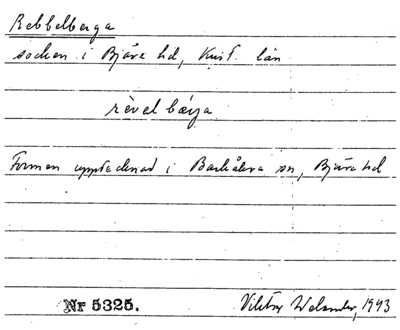 Rebbelberga
socken i Bjäre hd, Krist. län
rèvel bærja
Formen upptecknad i Barkåkra sn, Bjäre hd
Nr 5325. Viktor Welander, 1943